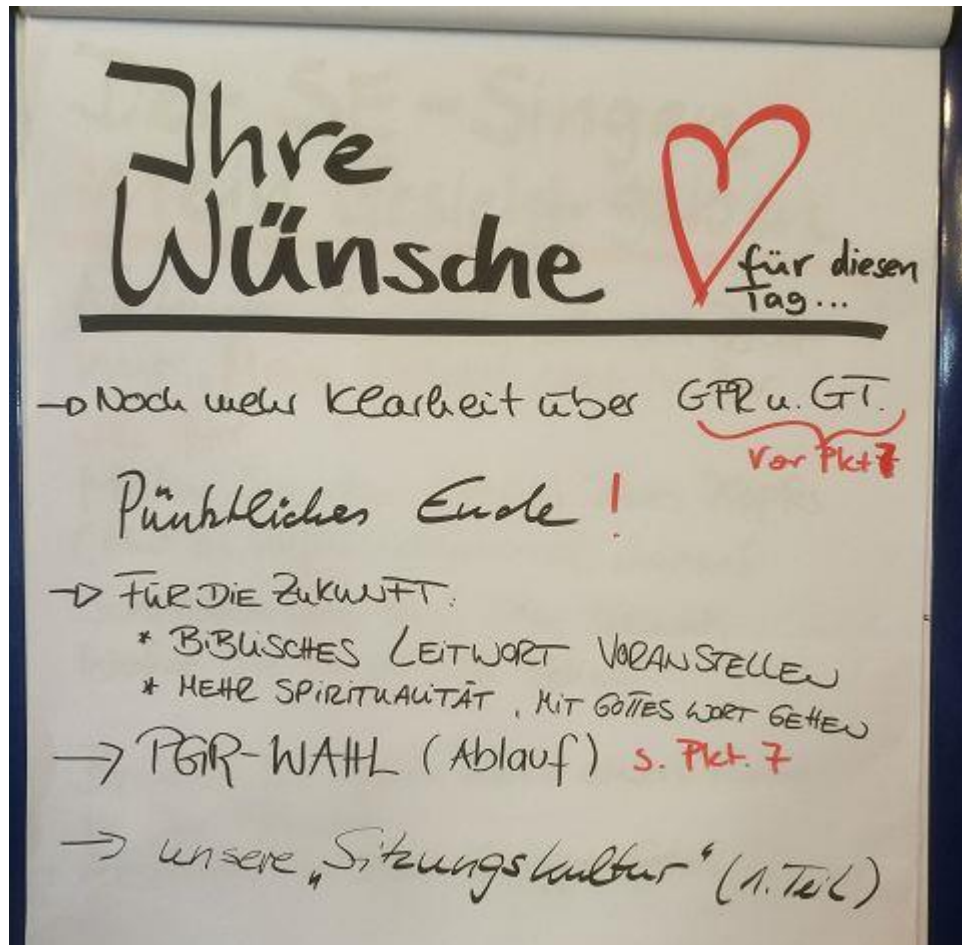 Ihre
Wünsche
für diesen
Tag...
→ Noch mehr Klarheit über GPR u. GT.
Vor Pkt 7
Pünktliches Ende !
→ FÜR DIE ZUKUNFT:
* BIBLISCHES LEITWORT VORANSTELLEN
* MEHR SPIRITUALITÄT, MIT GOTTES WORT GEHEN
→ PGR-WAHL (Ablauf) s. Pkt. 7
→ unsere „Sitzungskultur“ (1. Teil)